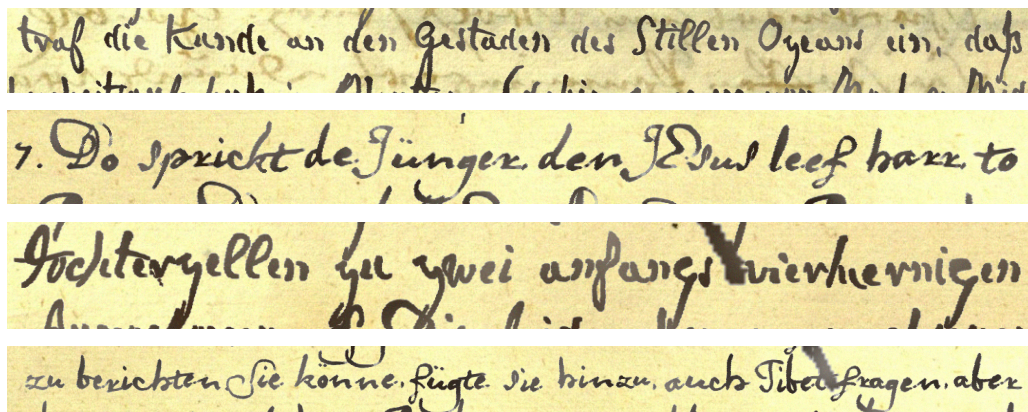 traf die Kunde an den Gestaden des Stillen Ozeans ein, daß
7. Do sprickt de Jünger den JEsus leef harr to
Tochterzellen zu zwei anfangs vierkernigen
zu berichten Sie könne, fügte sie hinzu, auch Tibet fragen, aber